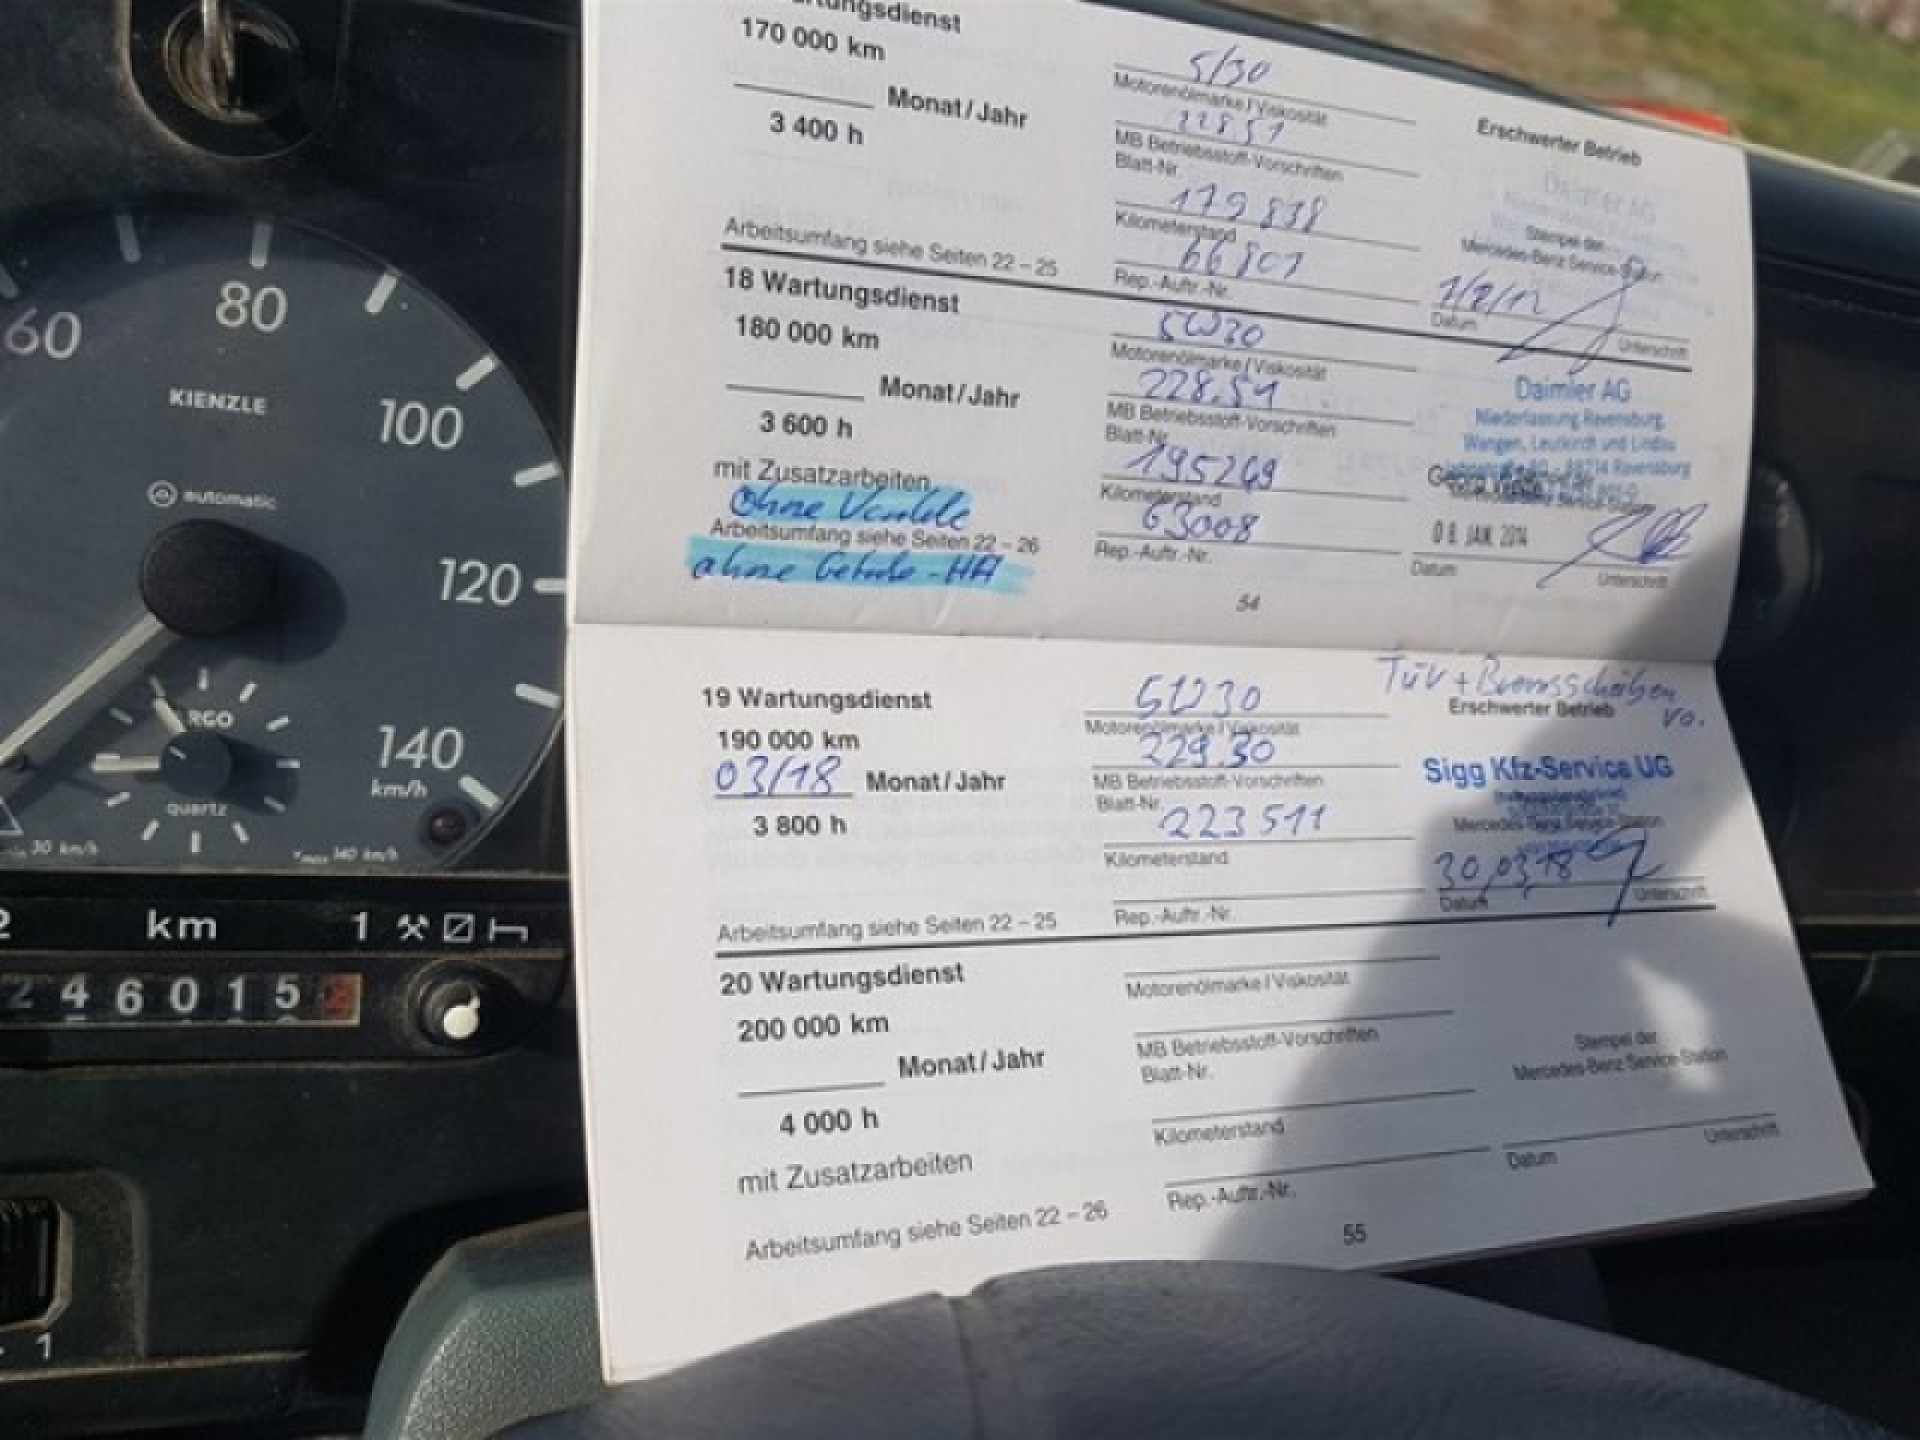 60
80
100
120
140
KIENZLE
automatic
ARGO
quartz
km/h
30 km/h
140 km/h
km
1
246015
1
170 000 km
Monat/Jahr
3 400 h
Arbeitsumfang siehe Seiten 22 – 25
5/30
Motorenölmarke / Viskosität
228 51
MB Betriebsstoff-Vorschriften
Blatt-Nr.
179 838
Kilometerstand
66801
Rep.-Auftr.-Nr.
Erschwerter Betrieb
Daimler AG
Stempel der
Mercedes-Benz Service-Station
Datum
Unterschrift
18 Wartungsdienst
180 000 km
Monat/Jahr
3 600 h
mit Zusatzarbeiten
ohne
Arbeitsumfang siehe Seiten 22 – 26
ohne Getriebe-HA
5W30
Motorenölmarke / Viskosität
228.51
MB Betriebsstoff-Vorschriften
Blatt-Nr.
195269
Kilometerstand
63008
Rep.-Auftr.-Nr.
Daimler AG
Niederlassung Ravensburg,
Wangen, Leutkirch und Lindau
08. JAN. 2014
Datum
Unterschrift
54
19 Wartungsdienst
190 000 km
03/18 Monat/Jahr
3 800 h
Arbeitsumfang siehe Seiten 22 – 25
5W30
Motorenölmarke / Viskosität
229.30
MB Betriebsstoff-Vorschriften
Blatt-Nr.
223511
Kilometerstand
Rep.-Auftr.-Nr.
TüV + Bremsscheiben
Erschwerter Betrieb
vo.
Sigg Kfz-Service UG
Mercedes-Benz Service-Station
30.03.18
Datum
Unterschrift
20 Wartungsdienst
200 000 km
Monat/Jahr
4 000 h
mit Zusatzarbeiten
Arbeitsumfang siehe Seiten 22 – 26
Motorenölmarke / Viskosität
MB Betriebsstoff-Vorschriften
Blatt-Nr.
Kilometerstand
Rep.-Auftr.-Nr.
Stempel der
Mercedes-Benz Service-Station
Datum
Unterschrift
55